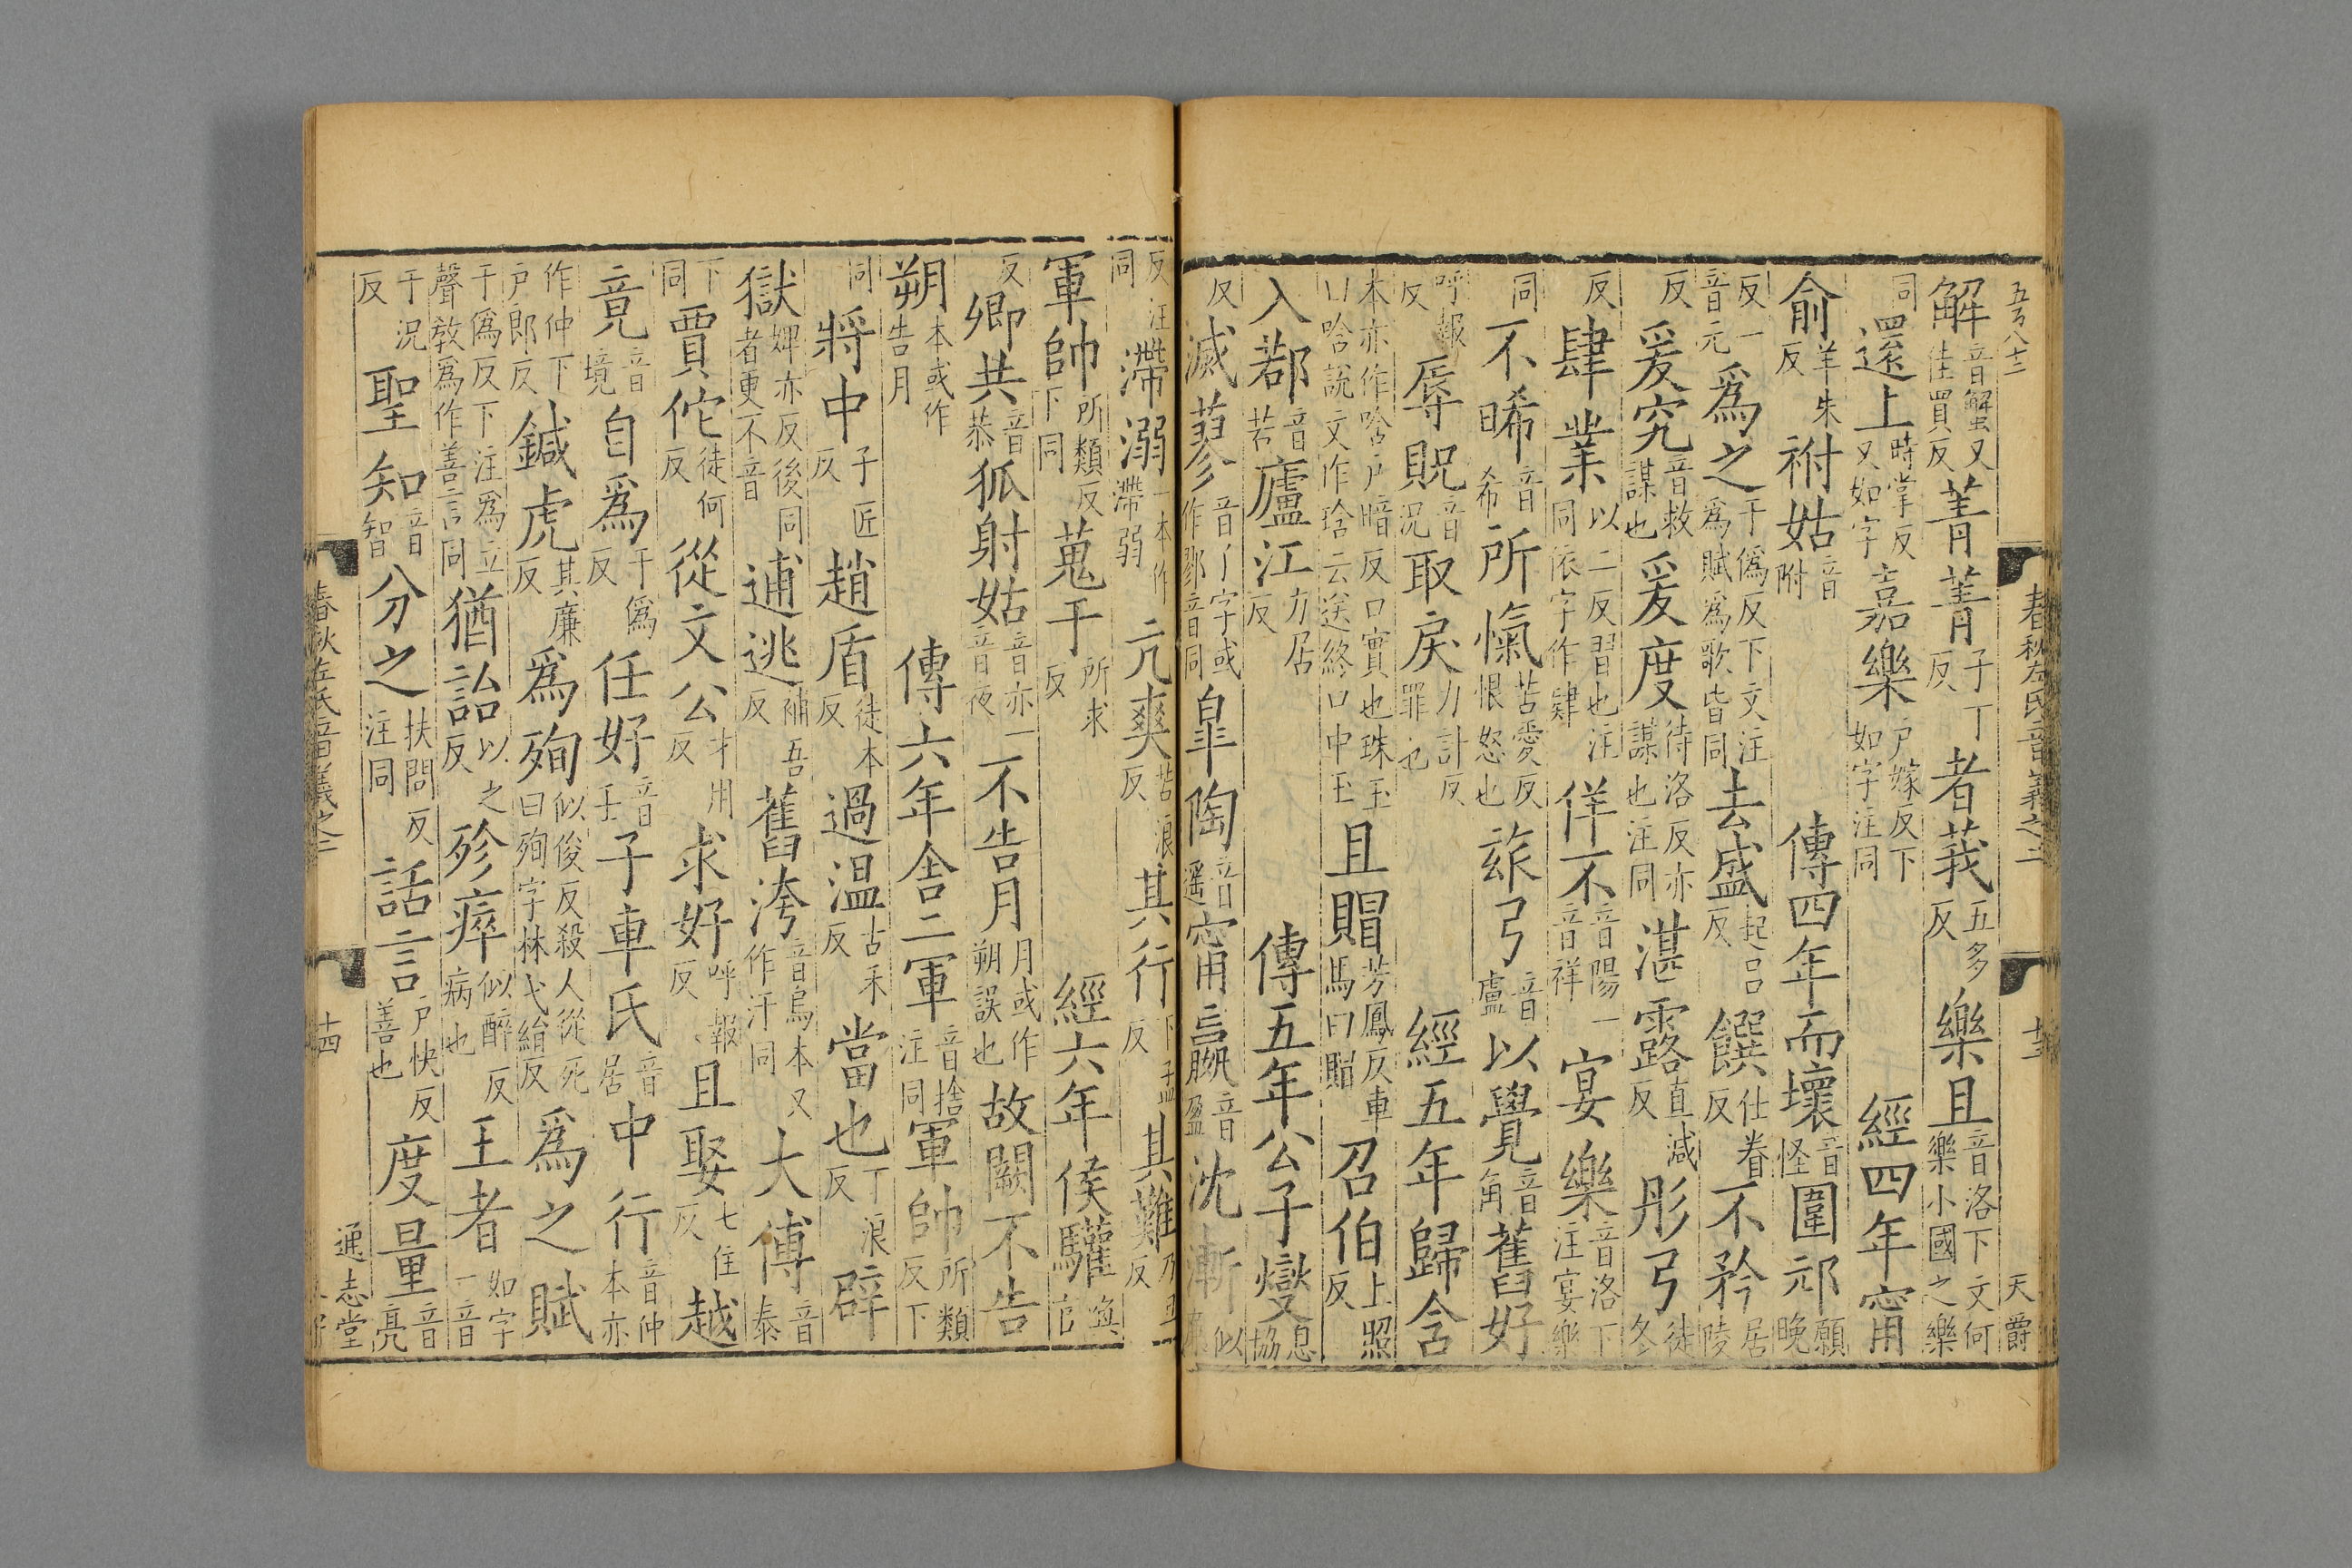 五百八十三
春秋左氏音義之二
十三
天爵
解音蟹又佳買反菁菁子丁反者莪五多反樂且音洛下文何樂小國之樂
同還上時掌反又如字嘉樂戶嫁反下如字注同經四年甯
俞羊朱反祔姑音附傳四年而壞音怪圍邧願晚
反一音元爲之于僞反下文注爲賦爲歌皆同去盛起呂反饌仕眷反不矜居陵
反爰究音救謀也爰度待洛反亦謀也注同湛露直減反彤弓徒冬
反肄業以二反習也注同依字作肄佯不音陽一音祥宴樂音洛下注宴樂
同不晞音希所愾苦愛反恨怒也玈弓音盧以覺音角舊好
呼報反辱貺音況取戾力計反罪也經五年歸含
本亦作唅戶暗反口實也珠玉曰唅說文作琀云送終口中玉且賵芳鳳反車馬曰賵召伯上照反
入鄀音若廬江力居反傳五年公子燮息協
反滅蓼音了字或作鄝音同皐陶音遥甯嬴音盈沈漸似廉
反注同滯溺一本作滯弱亢爽苦浪反其行下孟反其難乃旦反
軍帥所類反下同蒐于所求反經六年侯驩喚官
反卿共音恭狐射姑音亦一音夜不告月月或作朔誤也故闕不告
朔本或作告月傳六年舍二軍音捨注同軍帥所類反下
同將中子匠反趙盾徒本反過温古禾反當也丁浪反辟
獄婢亦反後同者更不音逋逃補吾反舊洿音烏本又作汙同大傅音泰
下同賈佗徒何反從文公才用反求好呼報反且娶七住反越
竟音境自爲于僞反任好音壬子車氏音居中行音仲本亦
作仲下戶郎反鍼虎其廉反爲殉似俊反殺人從死曰殉字林弋絹反爲之賦
于僞反下注爲立聲敎爲作善言同猶詒以之反殄瘁似醉反病也王者如字一音
于況反聖知音智分之扶問反注同話言戶快反善也度量音亮
春秋左氏音義之二
十四
通志堂